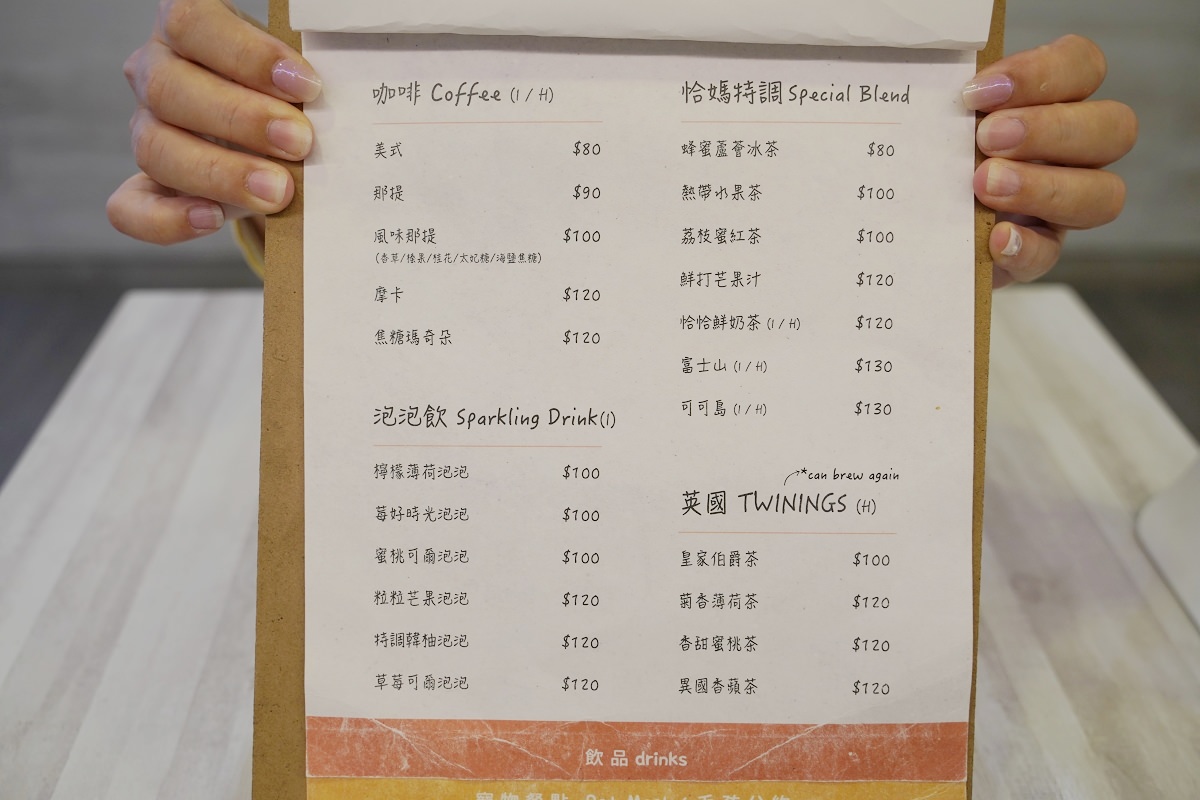 咖啡 Coffee (I / H)
美式 $80
那提 $90
風味那提 $100
(香草/榛果/桂花/太妃糖/海鹽焦糖)
摩卡 $120
焦糖瑪奇朵 $120
泡泡飲 Sparkling Drink(I)
檸檬薄荷泡泡 $100
莓好時光泡泡 $100
蜜桃可爾泡泡 $100
粒粒芒果泡泡 $120
特調韓柚泡泡 $120
草莓可爾泡泡 $120
恰媽特調 Special Blend
蜂蜜蘆薈冰茶 $80
熱帶水果茶 $100
荔枝蜜紅茶 $100
鮮打芒果汁 $120
恰恰鮮奶茶 (I / H) $120
富士山 (I / H) $130
可可島 (I / H) $130
*can brew again
英國 TWININGS (H)
皇家伯爵茶 $100
菊香薄荷茶 $120
香甜蜜桃茶 $120
異國香蘋茶 $120
飲品 drinks